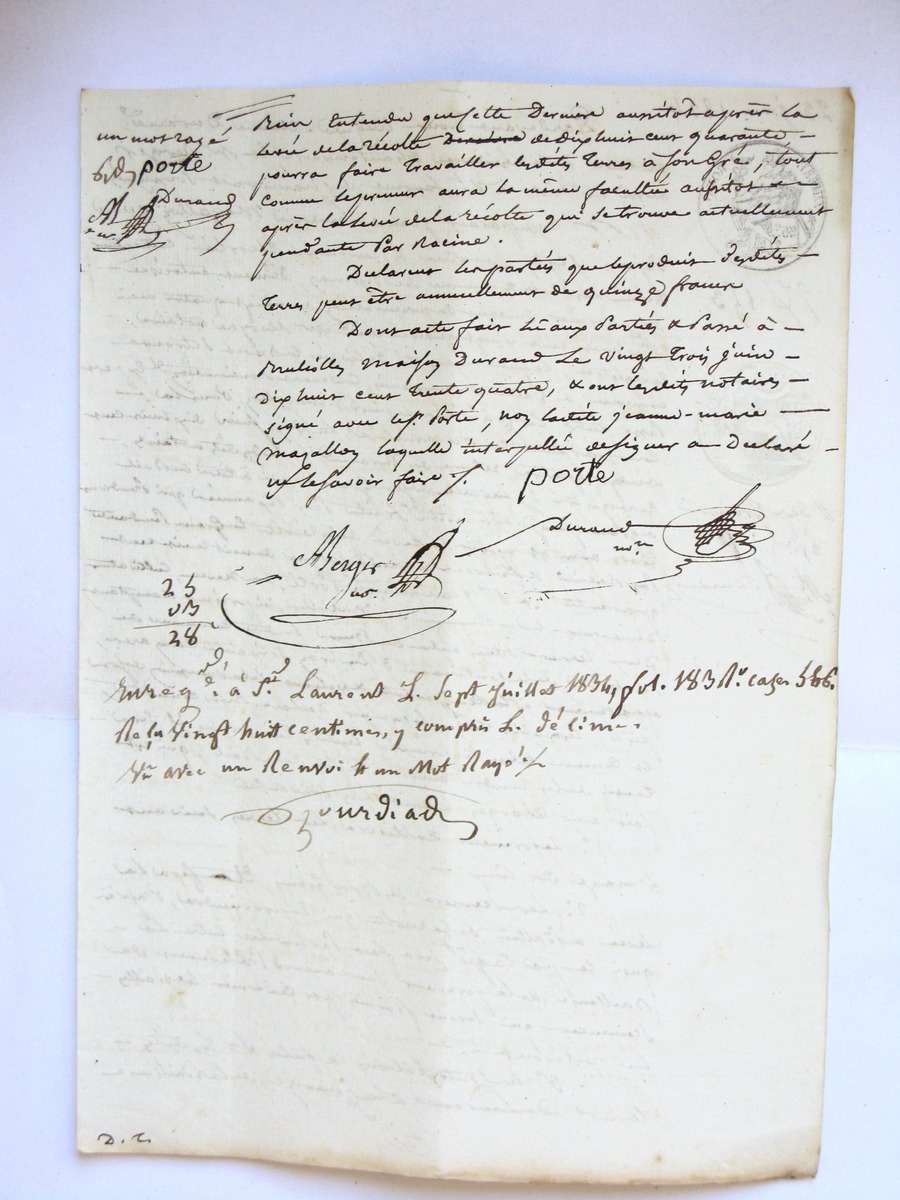 un mot rayé
porte
Durand
Bien Entendu que cette Derniere aussitôt après la
levée de la récolte Derniere de dix huit cent quarante
pourra faire Travailler lesdites Terres à son Gré, tout
comme le preneur aura la même facultée aussitot
après la levée de la récolte qui se trouve actuellement
pendante Par Racine.
Declarent les parties que le produit desdites
Terres peut être annuellement de quinze francs
Dont acte fait Lu aux Parties & Passé à
maison Durand Le vingt Trois juin
dix huit cent trente quatre, & ont lesdits notaires
signé avec led. Porte, non ladite jeanne-marie
majallon laquelle interpellée de signer a Declaré
ne le savoir faire /.
porte
Durand
nore
Berger
not.
25
03
28
Enregé. á St. Laurent L. Sept Juillet 1834, fol. 183 Ro. cases 5&6.
Reçu Vingt huit centimes, y compris L. décime.
avec un Renvoi & un Mot Rayé /.
D. C.